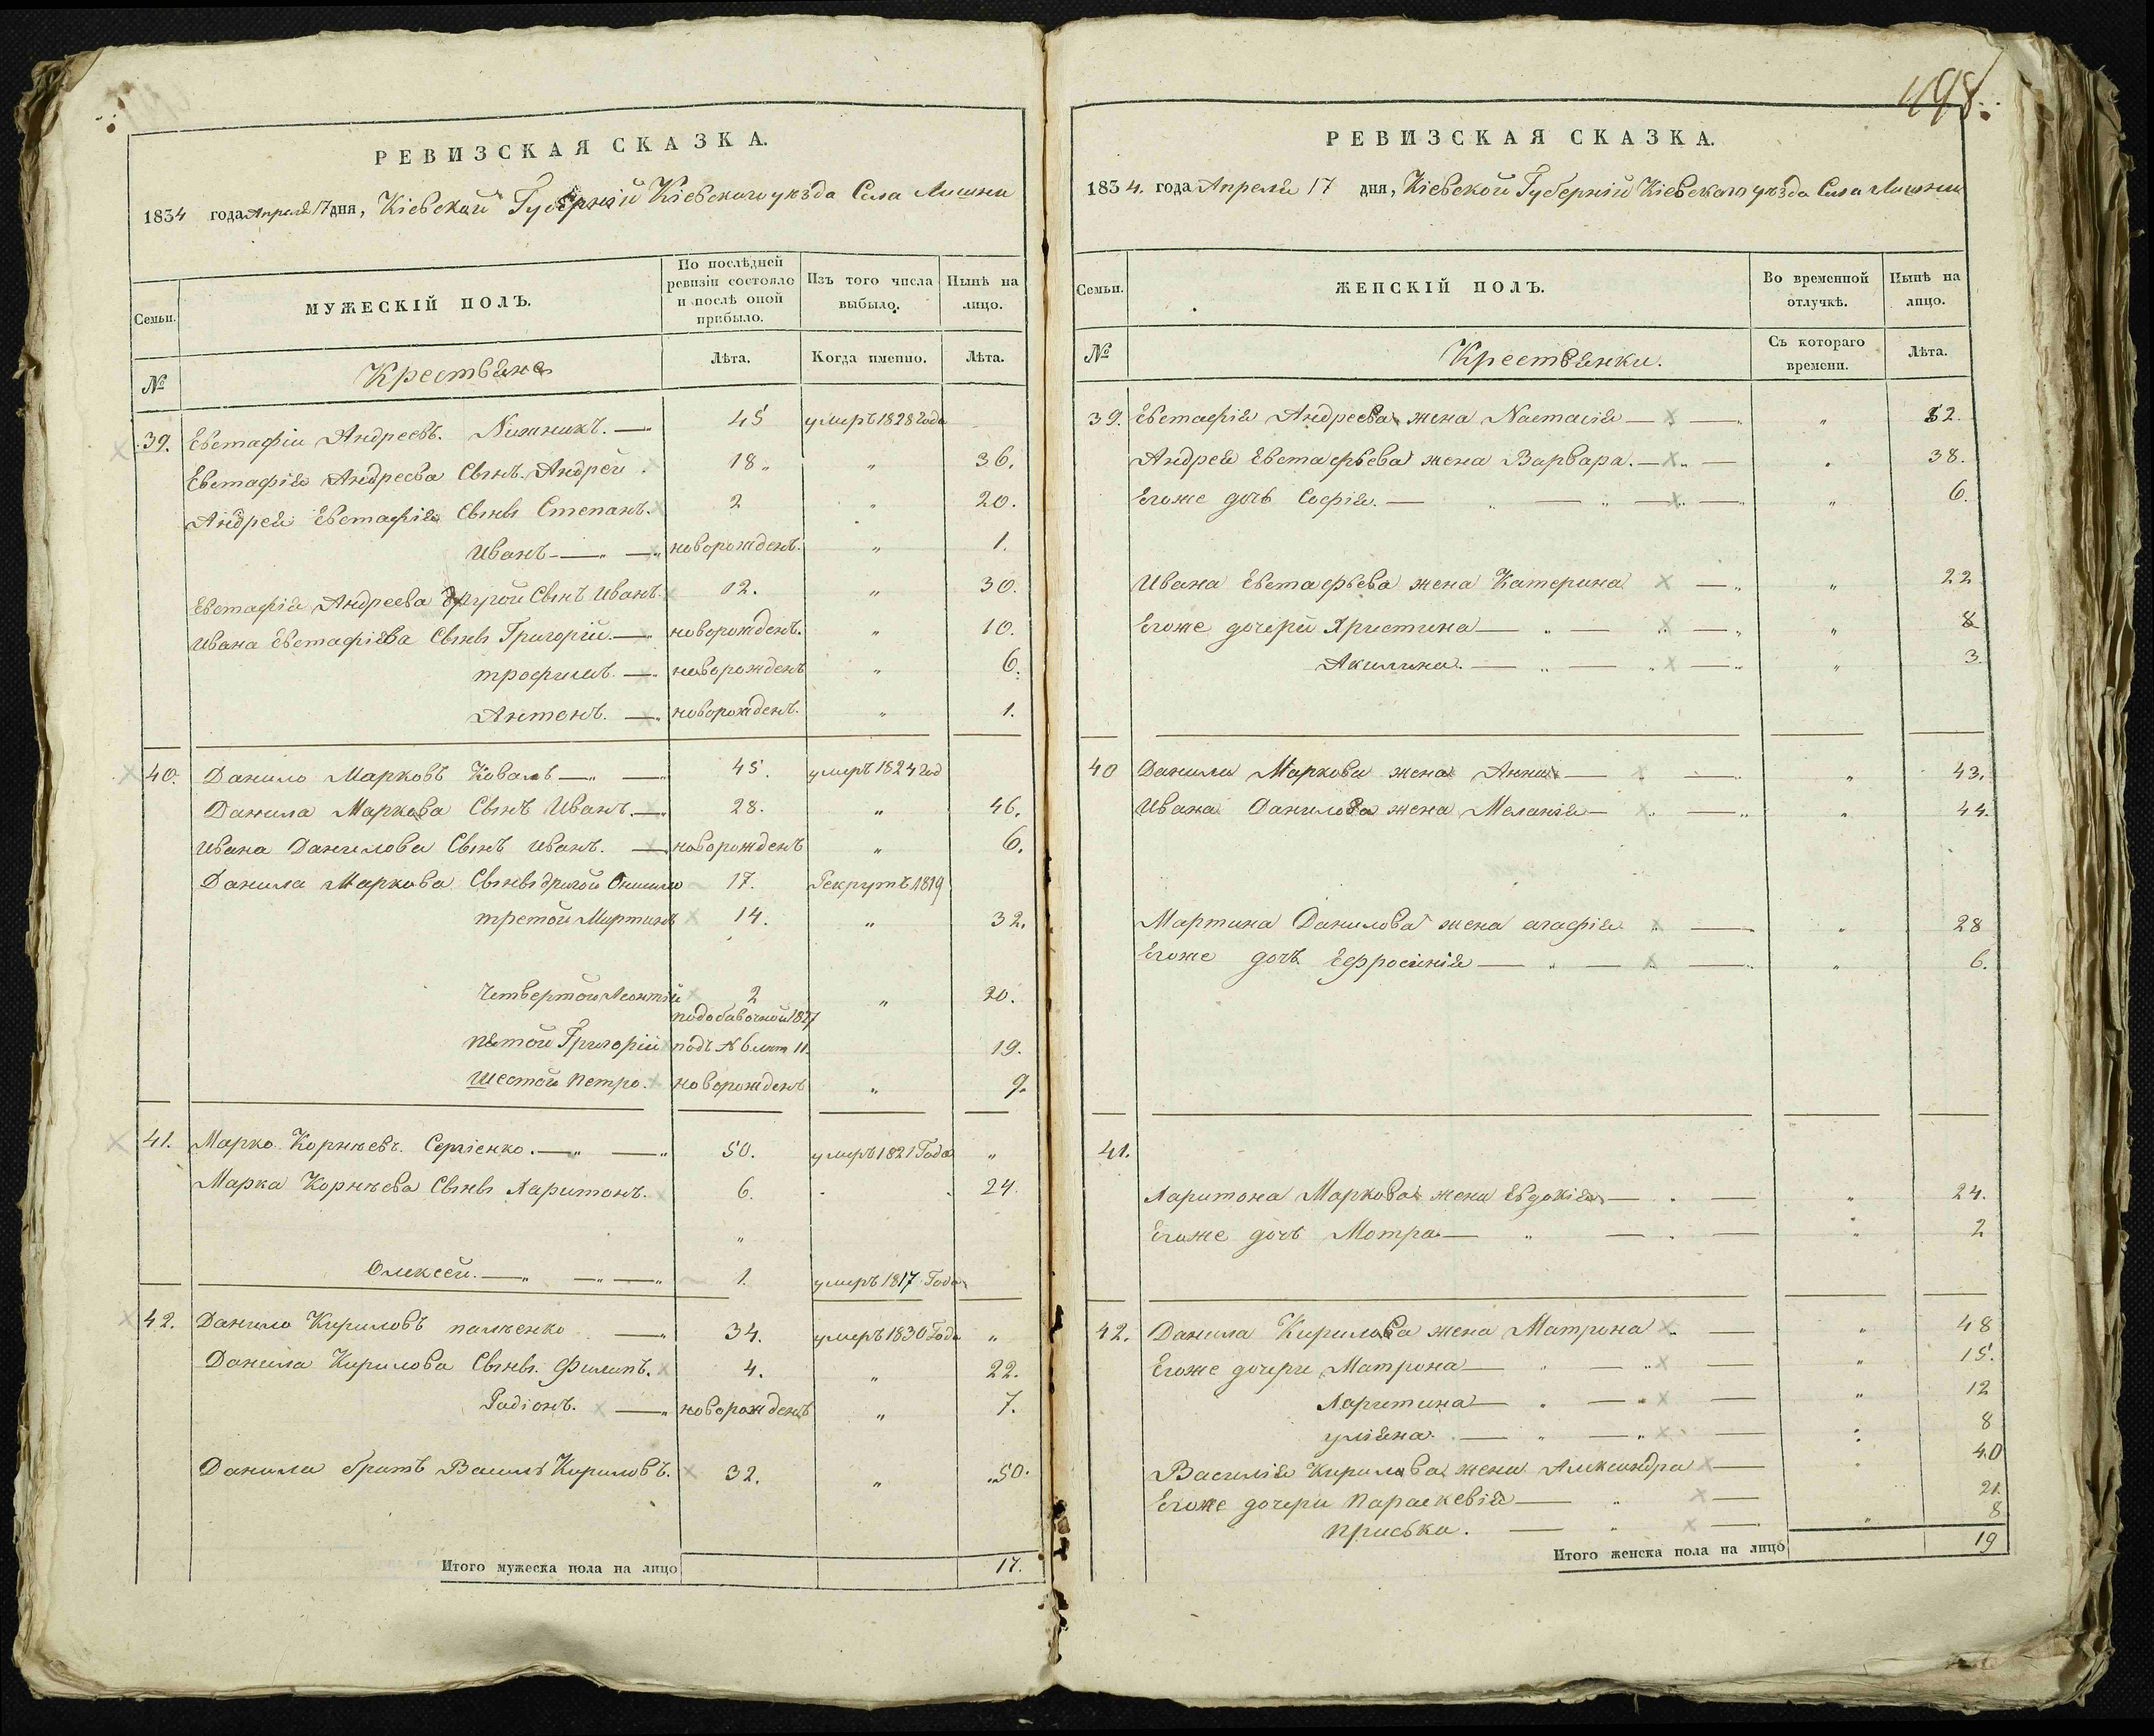 498.
РЕВИЗСКАЯ СКАЗКА.
1834 года Апреля 17 дня, Кіевской Губерніи Кіевскаго уѣзда Села Лишни
Семьи.
МУЖЕСКІЙ ПОЛЪ.
По послѣдней ревизіи состояло и послѣ оной прибыло.
Изъ того числа выбыло.
Нынѣ на лицо.
№
Крестьяне
Лѣта.
Когда именно.
Лѣта.
39. Евстафіи Андреевъ. — 45 умеръ 1828 года
Евстафія Андреева Сынъ Андрей. 18 „ „ 36.
Андрея Евстафія Сынъ Степанъ. 2 „ 20.
Иванъ — „ — новорожденъ. „ 1.
Евстафія Андреева другой Сынъ Иванъ. 12. „ 30.
Ивана Евстафіева Сынъ Григорій. — новорожденъ. „ 10.
трофимъ. — новорожденъ „ 6.
Антонъ. — новорожденъ. „ 1.
40. Данило Марковъ Коваль — „ — 45. умеръ 1824 год
Данила Маркова Сынъ Иванъ. — 28. „ 46.
Ивана Данилова Сынъ Иванъ. — новорожденъ „ 6.
Данила Маркова Сынъ другой 17. Рекрутъ 1819
третой Мартинъ 14. „ 32.
Четвертой Леонтій 2 „ 20.
подобавочной 1827
пятой Григорій подъ № 6 лет 11. 19.
шестой Петро. новорожденъ „ 9.
41. Марко Корнѣевъ. Сергіенко. — „ — „ 50. умеръ 1821 Года „
Марка Корнѣева Сынъ Харитонъ. 6. 24.
„
Олексей. — „ — „ — „ 1. умеръ 1817 Года
42. Данило Кириловъ — „ 34. умеръ 1830 Года „
Данила Кирилова Сынъ Филипъ. 4. „ 22.
Радіонъ. — „ новорожденъ „ 7.
Данила братъ Василь Кириловъ. 32. „ „ 50.
Итого мужеска пола на лицо 17.
РЕВИЗСКАЯ СКАЗКА.
1834. года Апреля 17 дня, Кіевской Губерніи Кіевскаго уѣзда Села Лишни
Семьи.
ЖЕНСКІЙ ПОЛЪ.
Во временной отлучкѣ.
Нынѣ на лицо.
№
Крестьянки.
Съ котораго времени.
Лѣта.
39. Евстафія Андреева жена Настасія — „ 52.
Андрея Евстафьева жена Варвара. — „ 38.
Егоже дочь Софія. — „ 6.
Ивана Евстафьева жена Катерина — „ „ 22
Егоже дочери Христина — „ — „ 8
Акилина. — „ — „ 3.
40 Данила Маркова жена Анна — „ 43.
Ивана Данилова жена Меланія — „ 44.
Мартина Данилова жена агафія „ — „ 28
Егоже дочь Ефросинія — „ — „ 6.
41.
Харитона Маркова жена Евдокія — „ — „ 24.
Егоже дочь Мотра — „ — „ 2
42. Данила Кирилова жена Матрона „ — „ 48
Егоже дочери Матрона — „ — „ 15.
Харитина — „ — „ 12
уліяна. — „ — „ 8
Василія Кирилова жена Александра — 40
Егоже дочери Параскевія — „ — 21.
Приська. — „ — „ 8
Итого женска пола на лицо 19